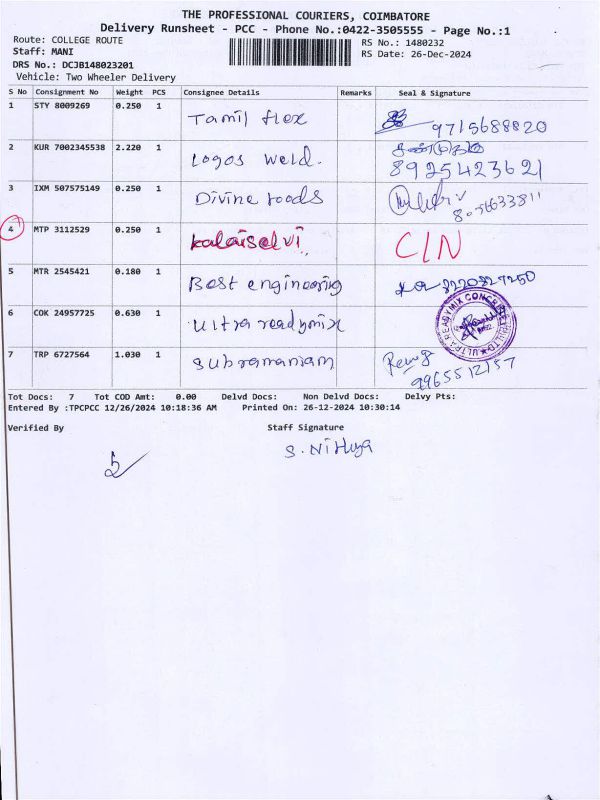 THE PROFESSIONAL COURIERS, COIMBATORE
Delivery Runsheet - PCC - Phone No.:0422-3505555 - Page No.:1
Route: COLLEGE ROUTE
RS No.: 1480232
Staff: MANI
RS Date: 26-Dec-2024
DRS No.: DCJB148023201
Vehicle: Two Wheeler Delivery
S No Consignment No Weight PCS Consignee Details Remarks Seal & Signature
1 STY 8009269 0.250 1 Tamil flex 9715688820
2 KUR 7002345538 2.220 1 Logos weld. 8925423621
3 IXM 507575149 0.250 1 Divine foods
4 MTP 3112529 0.250 1 kalaiselvi C/N
5 MTR 2545421 0.180 1 Best engineering 8220827250
6 COK 24957725 0.630 1 Ultra readymix
7 TRP 6727564 1.030 1 Subramaniam 9965512157
Tot Docs: 7 Tot COD Amt: 0.00 Delvd Docs: Non Delvd Docs: Delvy Pts:
Entered By :TPCPCC 12/26/2024 10:18:36 AM Printed On: 26-12-2024 10:30:14
Verified By Staff Signature
S. Nithya